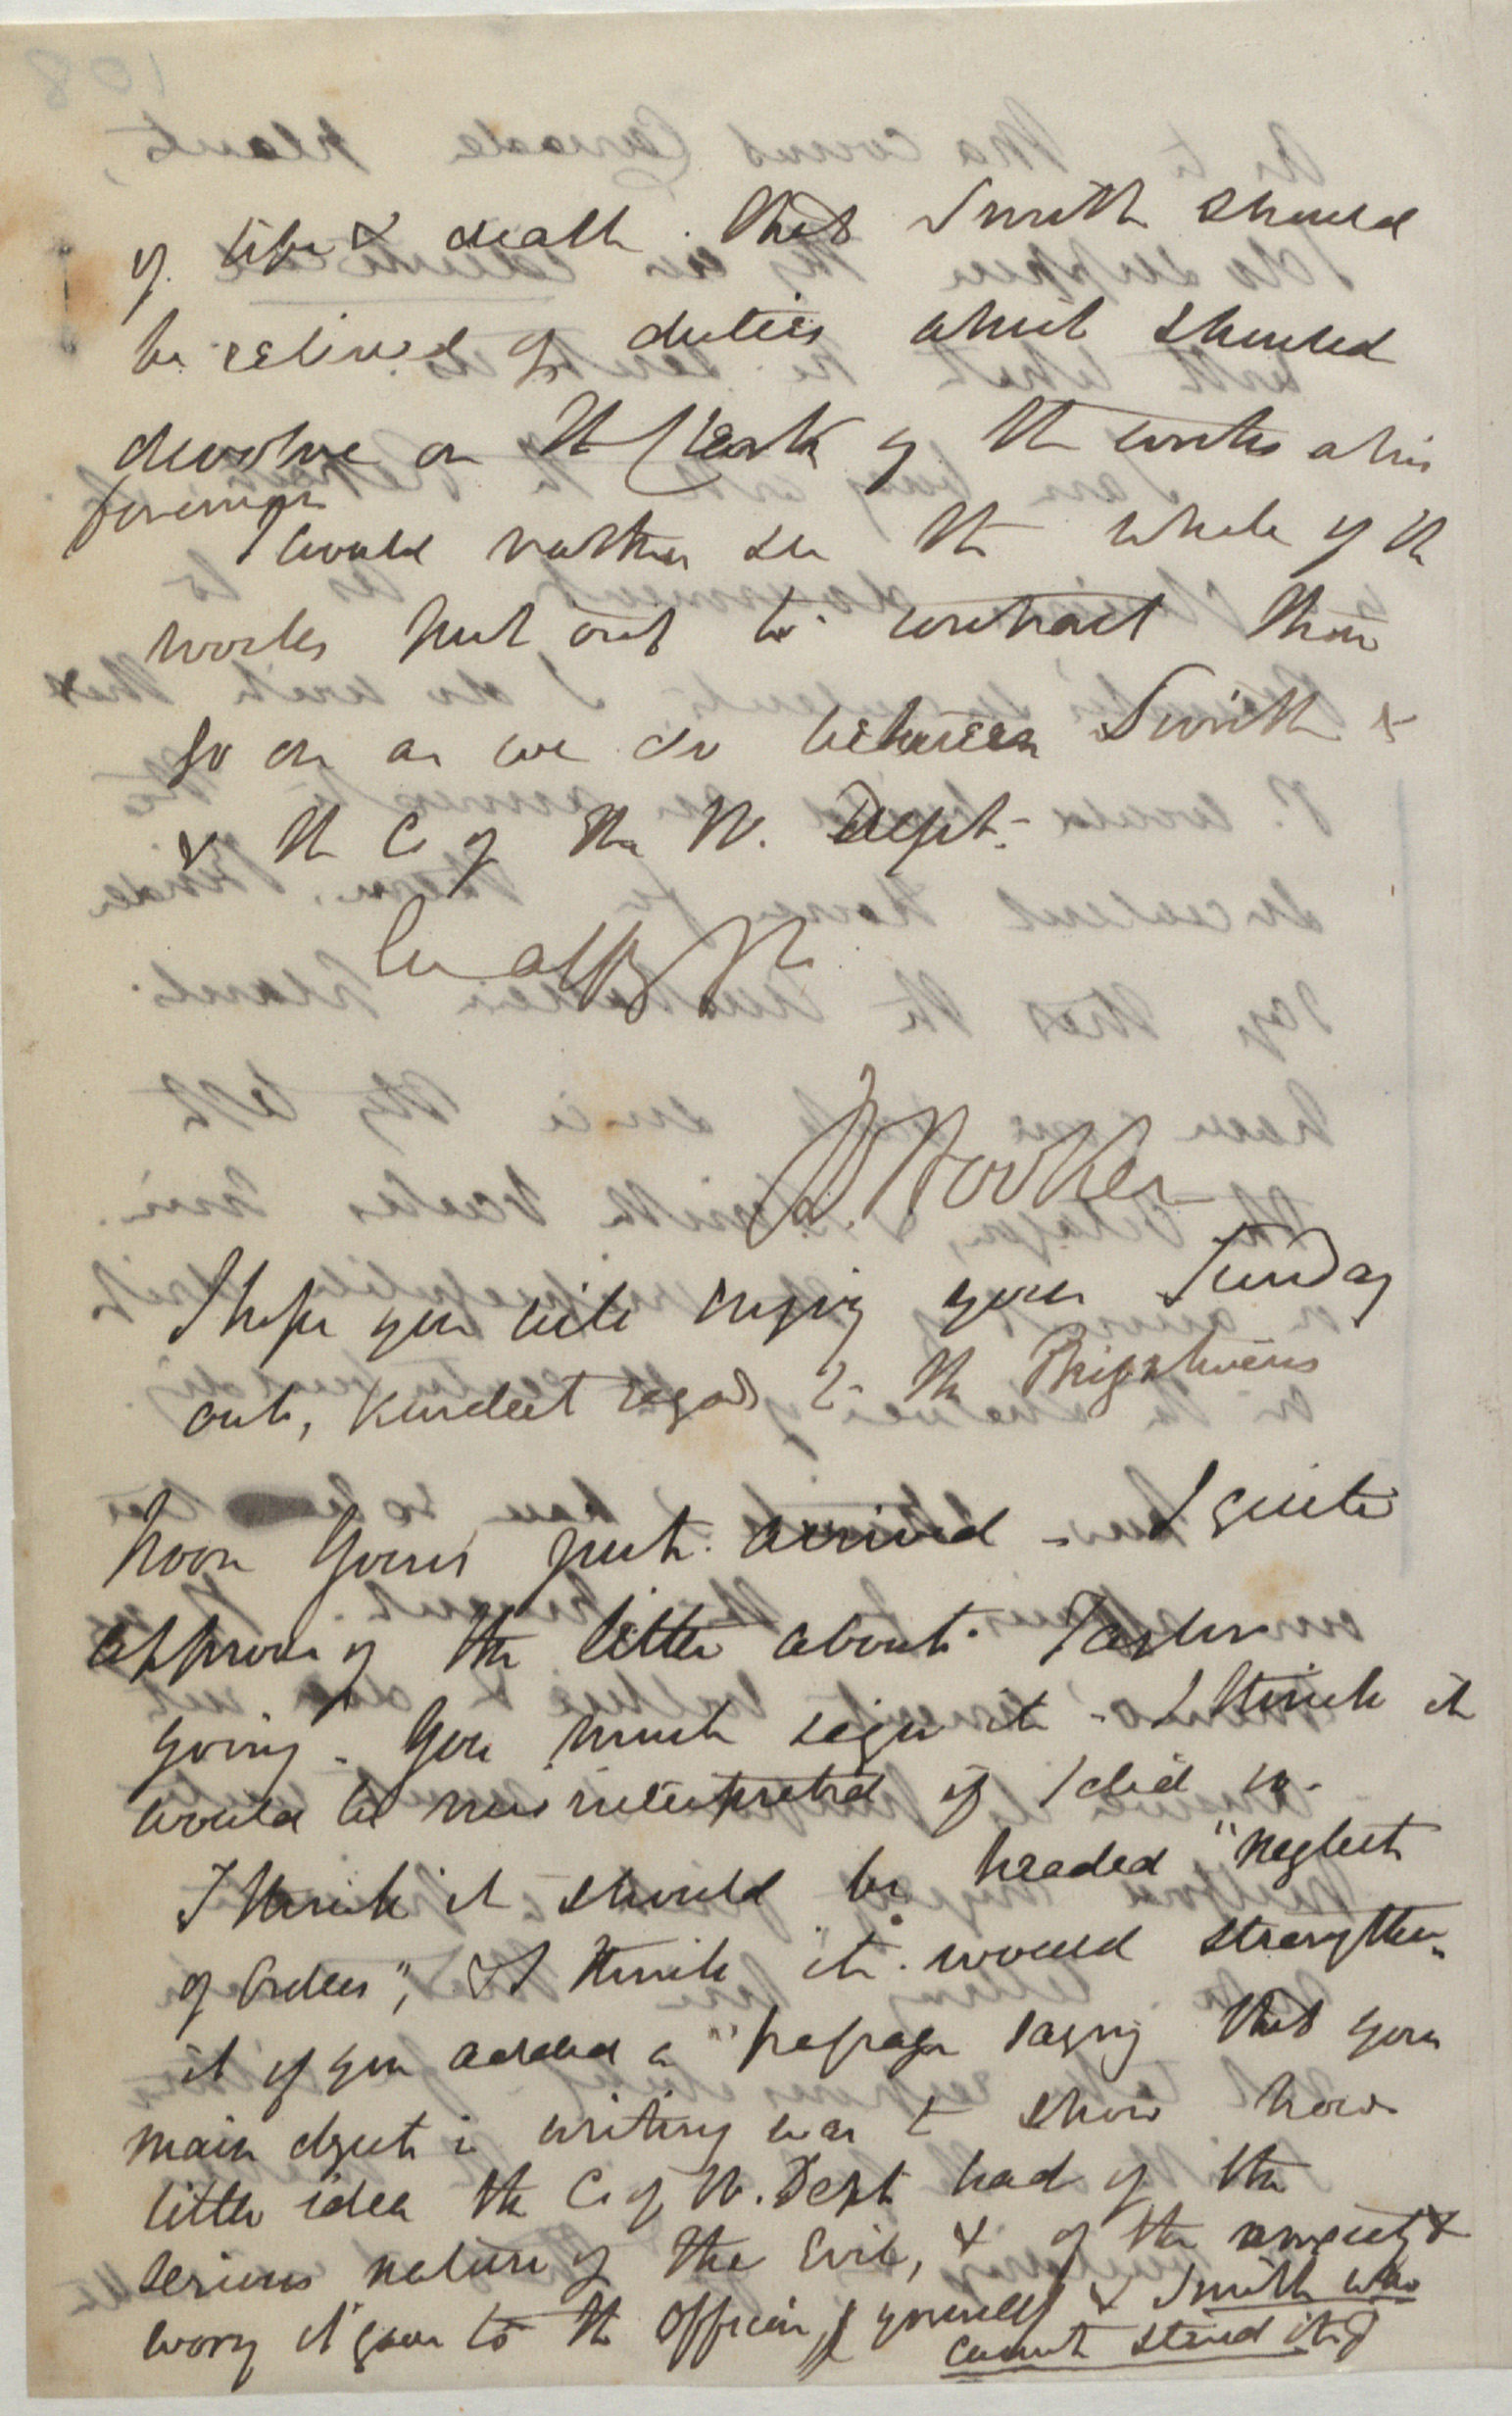 of life & death that Smith should
be relieved of duties which should
devolve on the Clerk of the works & his
foreman
I would rather see the whole of the
works put out to contract than
go on as we do between Smith &
& the C of the W. Dept.
Ever aff yr
J D Hooker
I hope you will enjoy your Sunday
out, Kindest regards to the
Noon Yours just arrived - I quite
approve of the letter about Taylor
going - You must sign it - I think it
would be misinterpreted if I did so -
I think it should be headed "neglect
of Orders", & I think it would strengthen
it if you added a saying that your
main object in writing was to show how
little idea the C of W. Dept had of the
serious nature of the Evil, & of the anxiety &
worry it gave to the Officers, yourself & Smith who
cannot stand it.